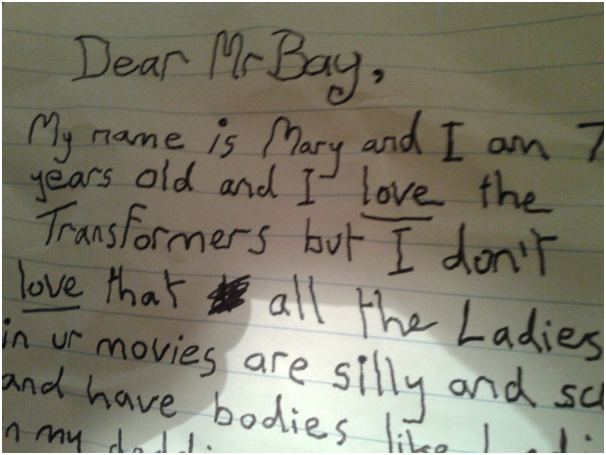 Dear Mr Bay,
My name is Mary and I am 7
years old and I love the
Transformers but I don't
love that all the Ladies
in ur movies are silly and
and have bodies like
my